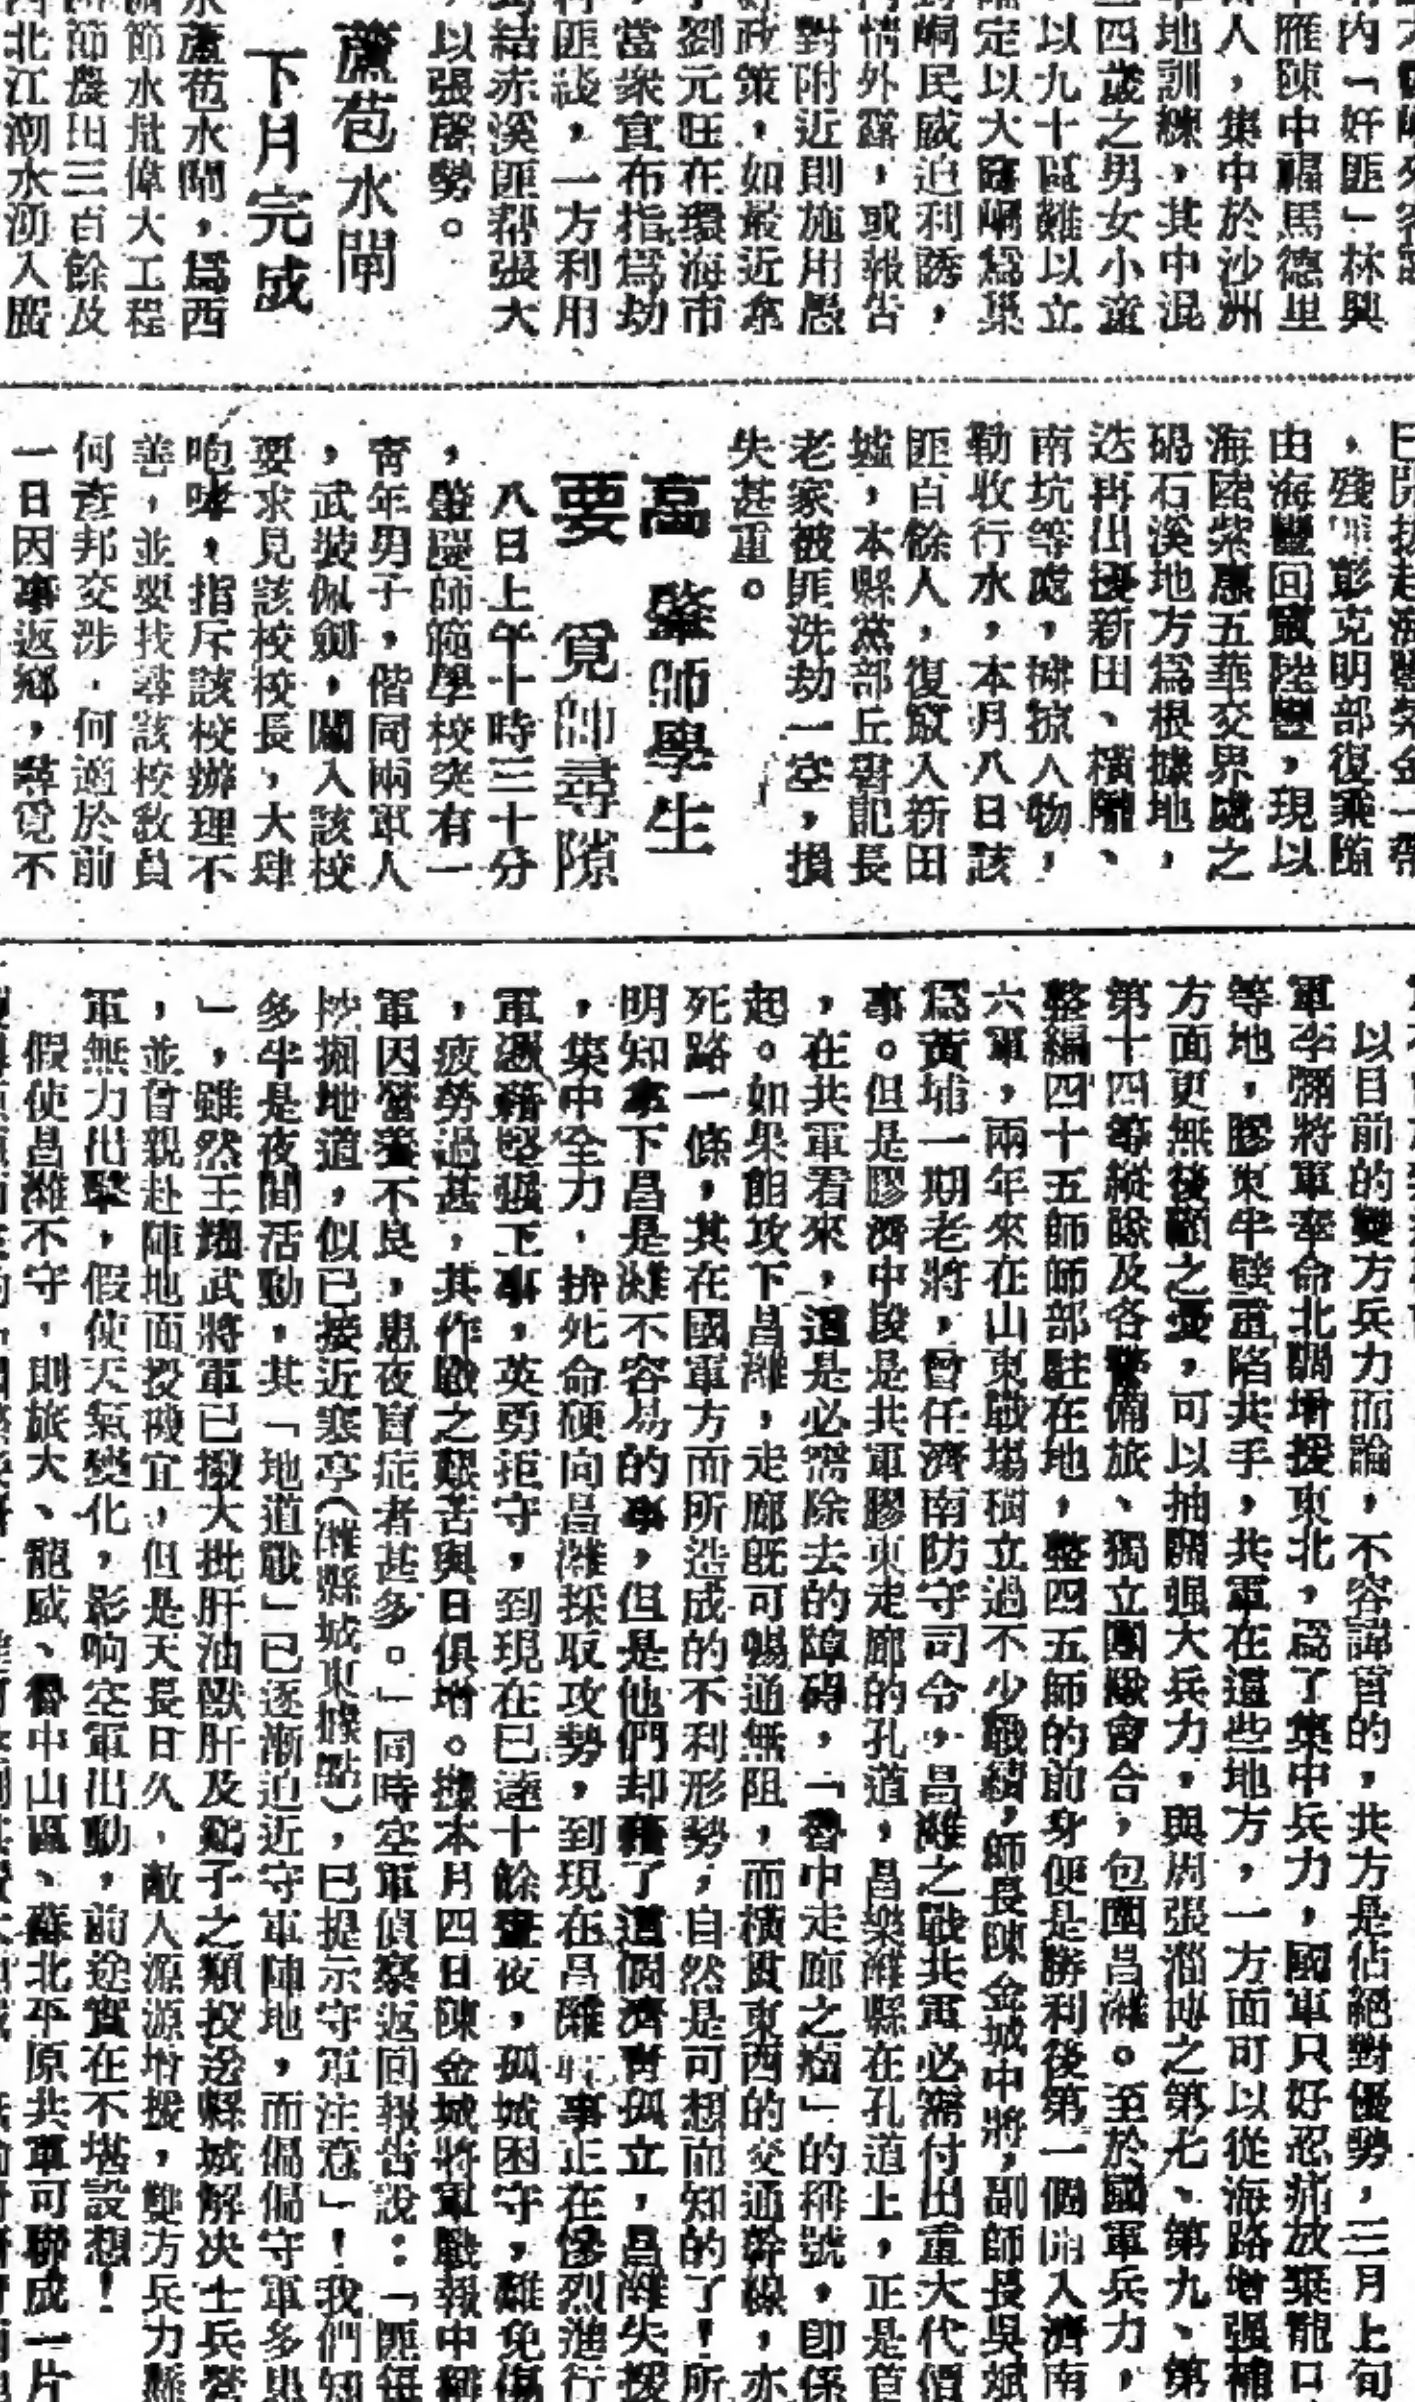 內「奸匪」林興
雁陳中福馬德里
人，集中於沙洲
地訓練，其中混
四歲之男女小童
以九十區難以立
定以大窩峒爲巢
峒民威迫利誘，
情外露，或報告
對附近則施用愚
政策，如最近拿
劉元旺在環海市
當衆宣布指爲劫
匪綫，一方利用
結赤溪匪帮張大
以張聲勢。
蘆苞水閘
下月完成
蘆苞水閘，爲西
節水批偉大工程
節農田三百餘及
北江潮水湧入廣
，殘匪彭克明部復乘隙
由海豐回竄陸豐，現以
海陸紫惠五華交界處之
碣石溪地方爲根據地，
迭再出擾新田、橫隴、
南坑等處，擄掠人物，
勒收行水，本月八日該
匪百餘人，復竄入新田
墟，本縣黨部丘書記長
老家被匪洗劫一空，損
失甚重。
高要
肇師學生
覓師尋隙
八日上午十時三十分
，肇慶師範學校突有一
靑年男子，偕同兩軍人
，武裝佩劍，闖入該校
要求見該校校長，大肆
咆哮，指斥該校辦理不
善，並要找尋該校敎員
何彥邦交涉，何適於前
一日因事返鄉，尋覓不
以目前的雙方兵力而論，不容諱言的，共方是佔絕對優勢，三月上旬
軍李彌將軍率命北調增援東北，爲了集中兵力，國軍只好忍痛放棄龍口
等地，膠東半壁重陷共手，共軍在這些地方，一方面可以從海路增强補
方面更無後顧之憂，可以抽調强大兵力，與周張淄博之第七、第九、第
第十四等縱隊及各警備旅、獨立團隊會合，包圍昌濰。至於國軍兵力，
整編四十五師師部駐在地，整四五師的前身便是勝利後第一個開入濟南
六軍，兩年來在山東戰場樹立過不少戰績，師長陳金城中將，副師長吳斌
爲黃埔一期老將，曾任濟南防守司令，昌濰之戰共軍必需付出重大代價
事。但是膠濟中段是共軍膠東走廊的孔道，昌樂濰縣在孔道上，正是首
，在共軍看來，這是必需除去的障碍，「魯中走廊之瘤」的稱號，卽係
起。如果能攻下昌濰，走廊旣可暢通無阻，而橫貫東西的交通幹線，亦
死路一條，其在國軍方面所造成的不利形勢，自然是可想而知的了！所
明知拿下昌是濰不容易的事，但是他們却藉了這個濟靑孤立，昌濰失援
，集中全力，拚死命硬向昌濰採取攻勢，到現在昌濰戰事正在慘烈進行
軍憑藉堅强工事，英勇拒守，到現在已達十餘晝夜，孤城困守，難免傷
，疲勞過甚，其作戰之艱苦與日俱增。據本月四日陳金城將軍戰報中稱
軍因營養不良，患夜盲症者甚多。」同時空軍偵察返回報告說：「匪每
抄掘地道，似已接近寒亭（濰縣城東據點），已提示守軍注意」！我們知
多半是夜間活動，其「地道戰」已逐漸迫近守軍陣地，而偏偏守軍多患
」，雖然王耀武將軍已撥大批肝油獸肝及鷄子之類投送縣城解决士兵營
，並曾親赴陣地面投機宜，但是天長日久，敵人源源增援，雙方兵力懸
軍無力出擊，假使天氣變化，影响空軍出動，前途實在不堪設想！
假使昌濰不守，則旅大、龍威、魯中山區、蘇北平原共軍可聯成一片